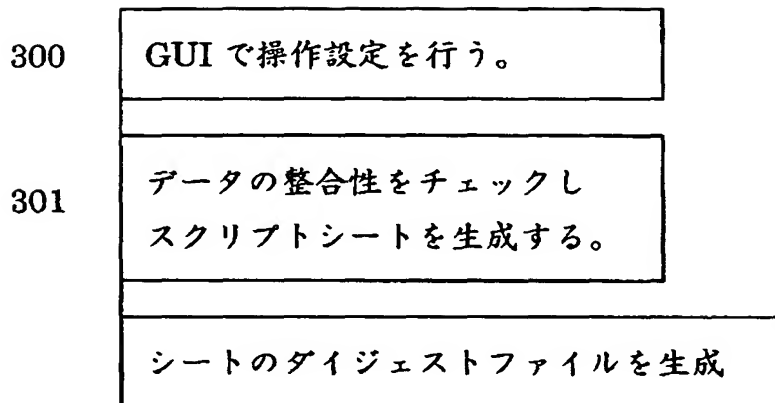 300 GUI で操作設定を行う。
301 データの整合性をチェックし
スクリプトシートを生成する。
シートのダイジェストファイルを生成